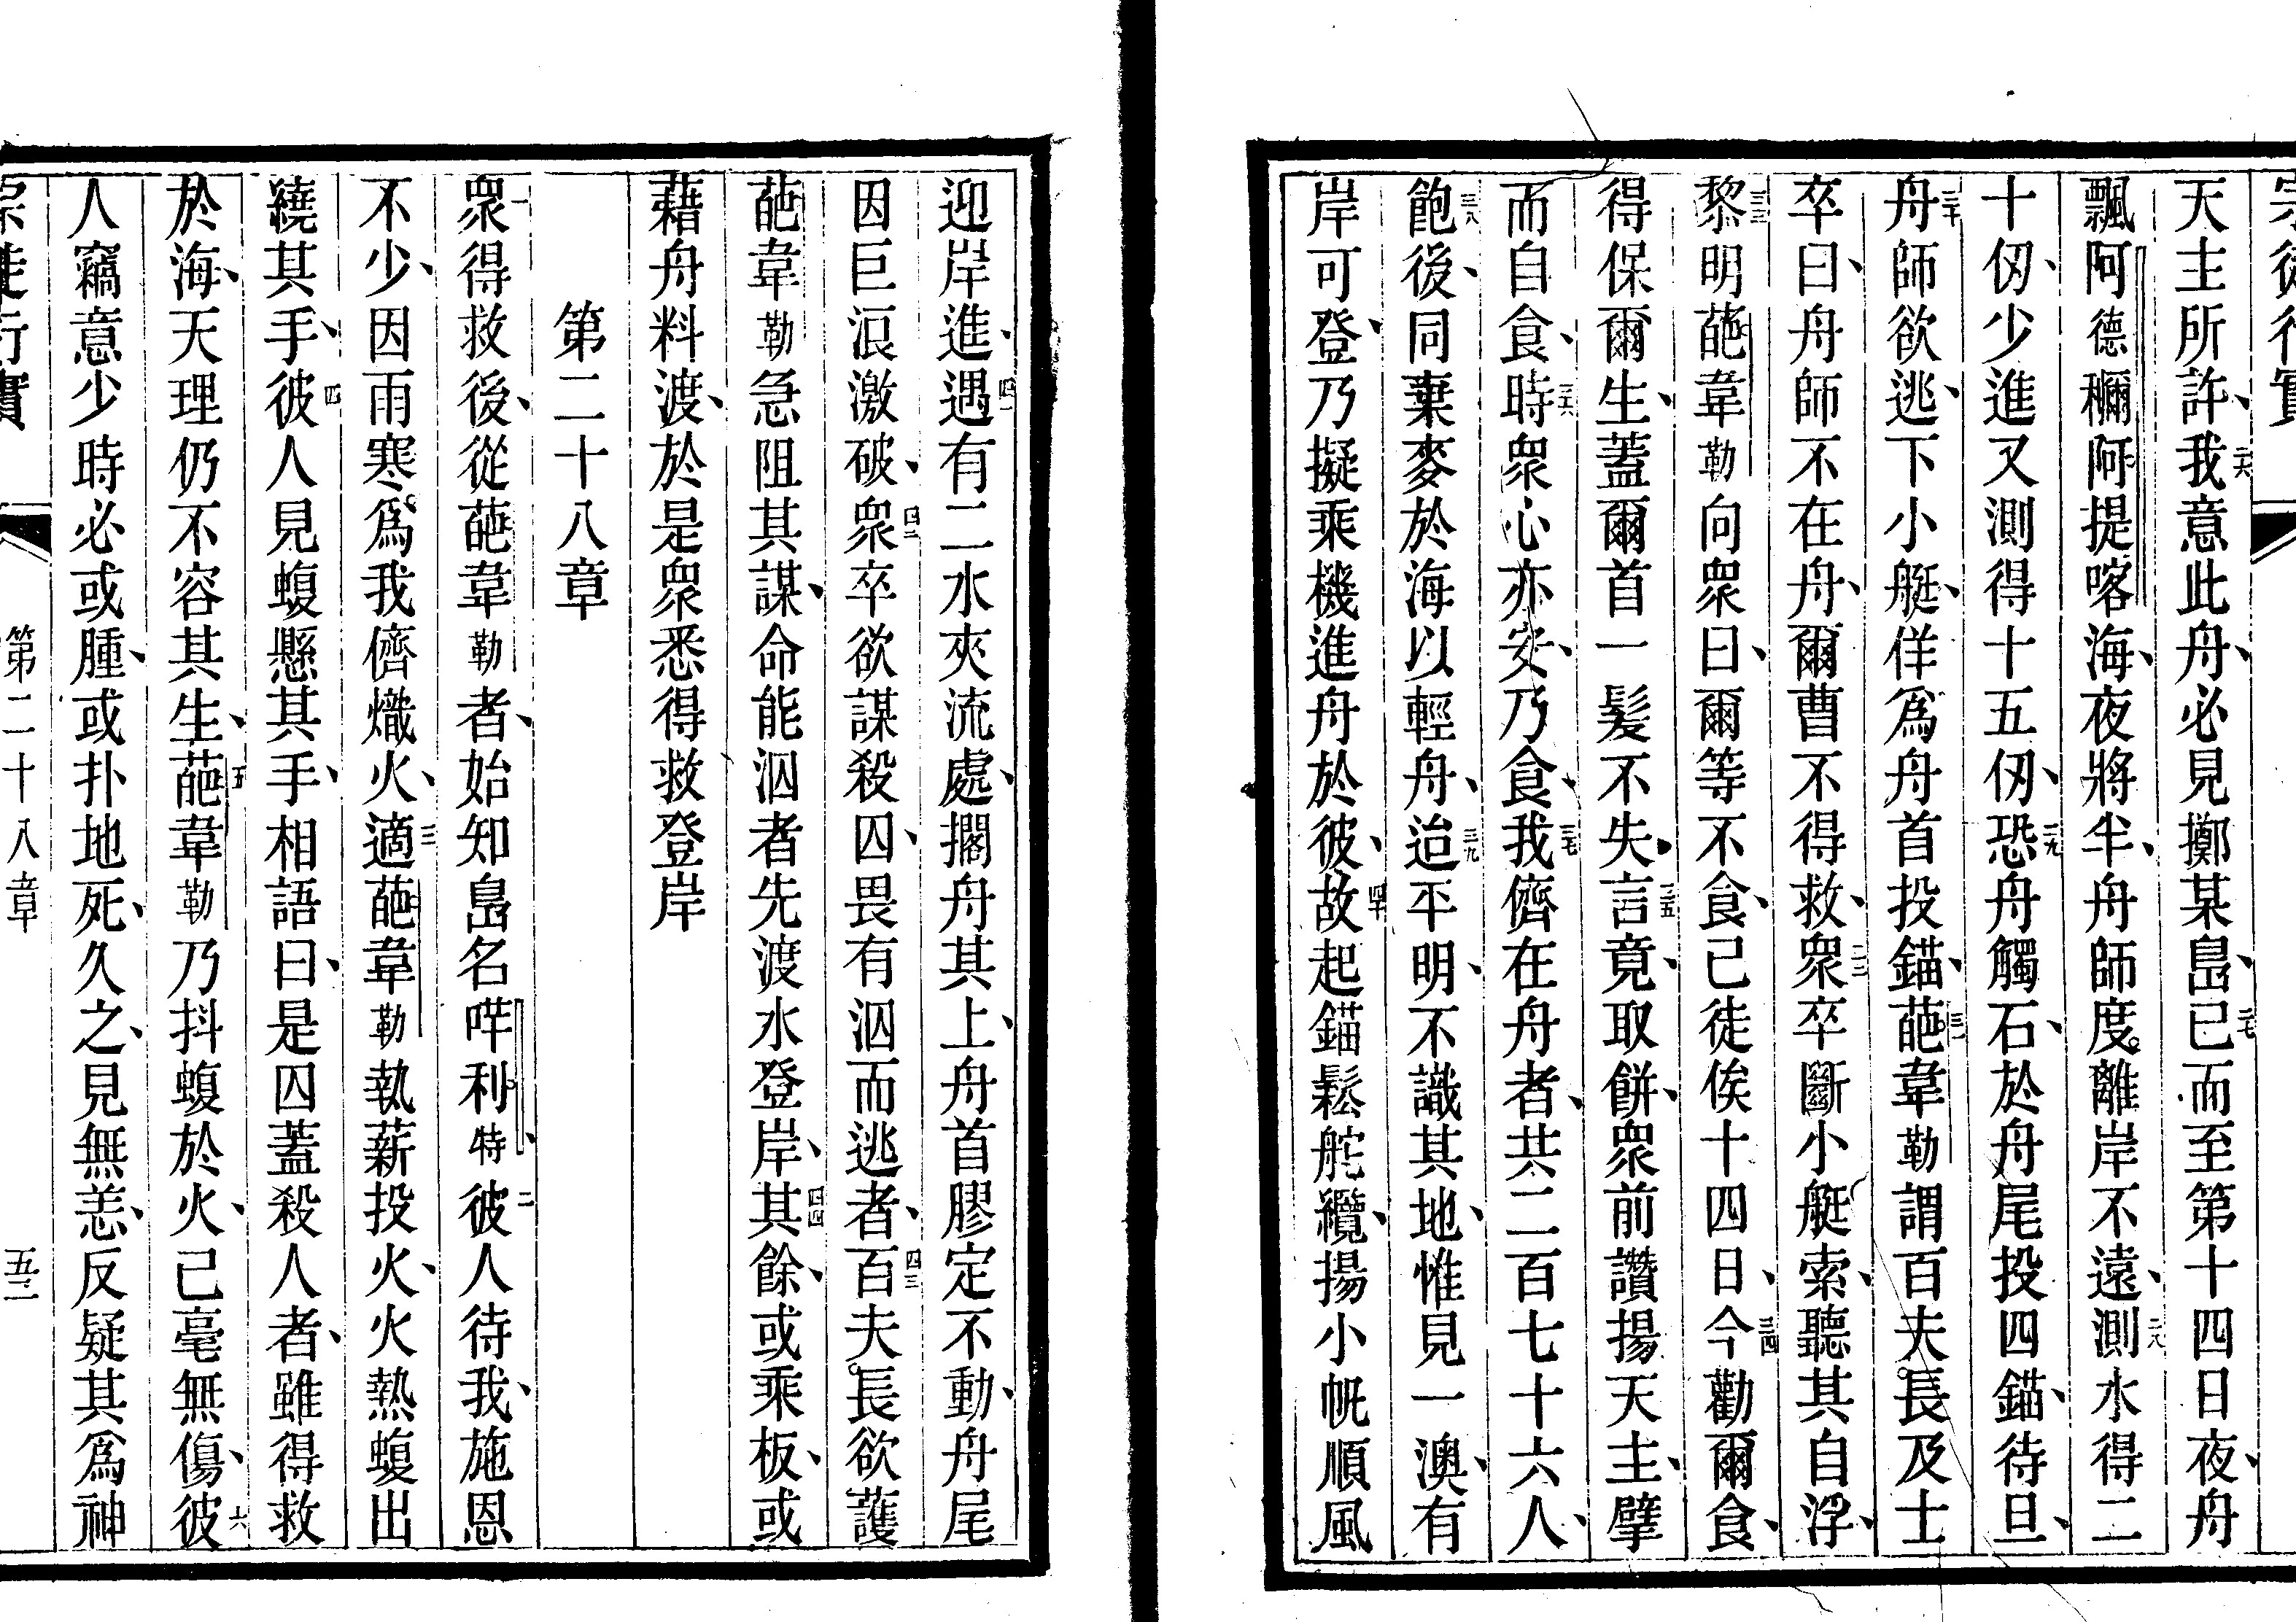 宗徒行實
天主所許、我二六意此舟、必見擲某島、已二七而至第十四日夜、舟
飄阿德穪阿提喀海、夜將半、舟師度離岸不遠、測二八水得二
十仞、少進又測得十五仞、恐二九舟觸石、於舟尾投四錨、待旦、
舟三十師欲逃、下小艇、佯爲舟首投錨、葩三一韋勒謂百夫長及士
卒曰、舟師不在舟、爾曹不得救、衆三二卒斷小艇索、聽其自浮、
黎三三明葩韋勒向衆曰、爾等不食、己徒俟十四日、今三四勸爾食、
得保爾生、蓋爾首一髪不失、言三五竟、取餅、衆前讚揚天主、擘
而自食、時三六衆心亦安、乃食、我三七儕在舟者、共二百七十六人、
飽三八後、同棄麥於海以輕舟、迨三九平明、不識其地、惟見一澳、有
岸可登、乃擬乘機進舟於彼、故四十起錨鬆舵纜、揚小帆順風
迎岸進、遇四一有二水夾流處、擱舟其上、舟首膠定不動、舟尾
因巨浪激破、衆四二卒欲謀殺囚、畏有泅而逃者、百四三夫長欲護
葩韋勒急阻其謀、命能泅者先渡水登岸、其四四餘、或乘板、或
藉舟料渡、於是衆悉得救登岸
第二十八章
衆一得救後、從葩韋勒者、始知島名哶利特、彼二人待我、施恩
不少、因雨寒爲我儕熾火、適三葩韋勒執薪投火、火熱蝮出
繞其手、彼四人見蝮懸其手、相語曰、是囚蓋殺人者、雖得救
於海、天理仍不容其生、葩五韋勒乃抖蝮於火、己毫無傷、彼六
人竊意少時必或腫、或扑地死、久之、見無恙、反疑其爲神
宗徒行實 第二十八章 五二